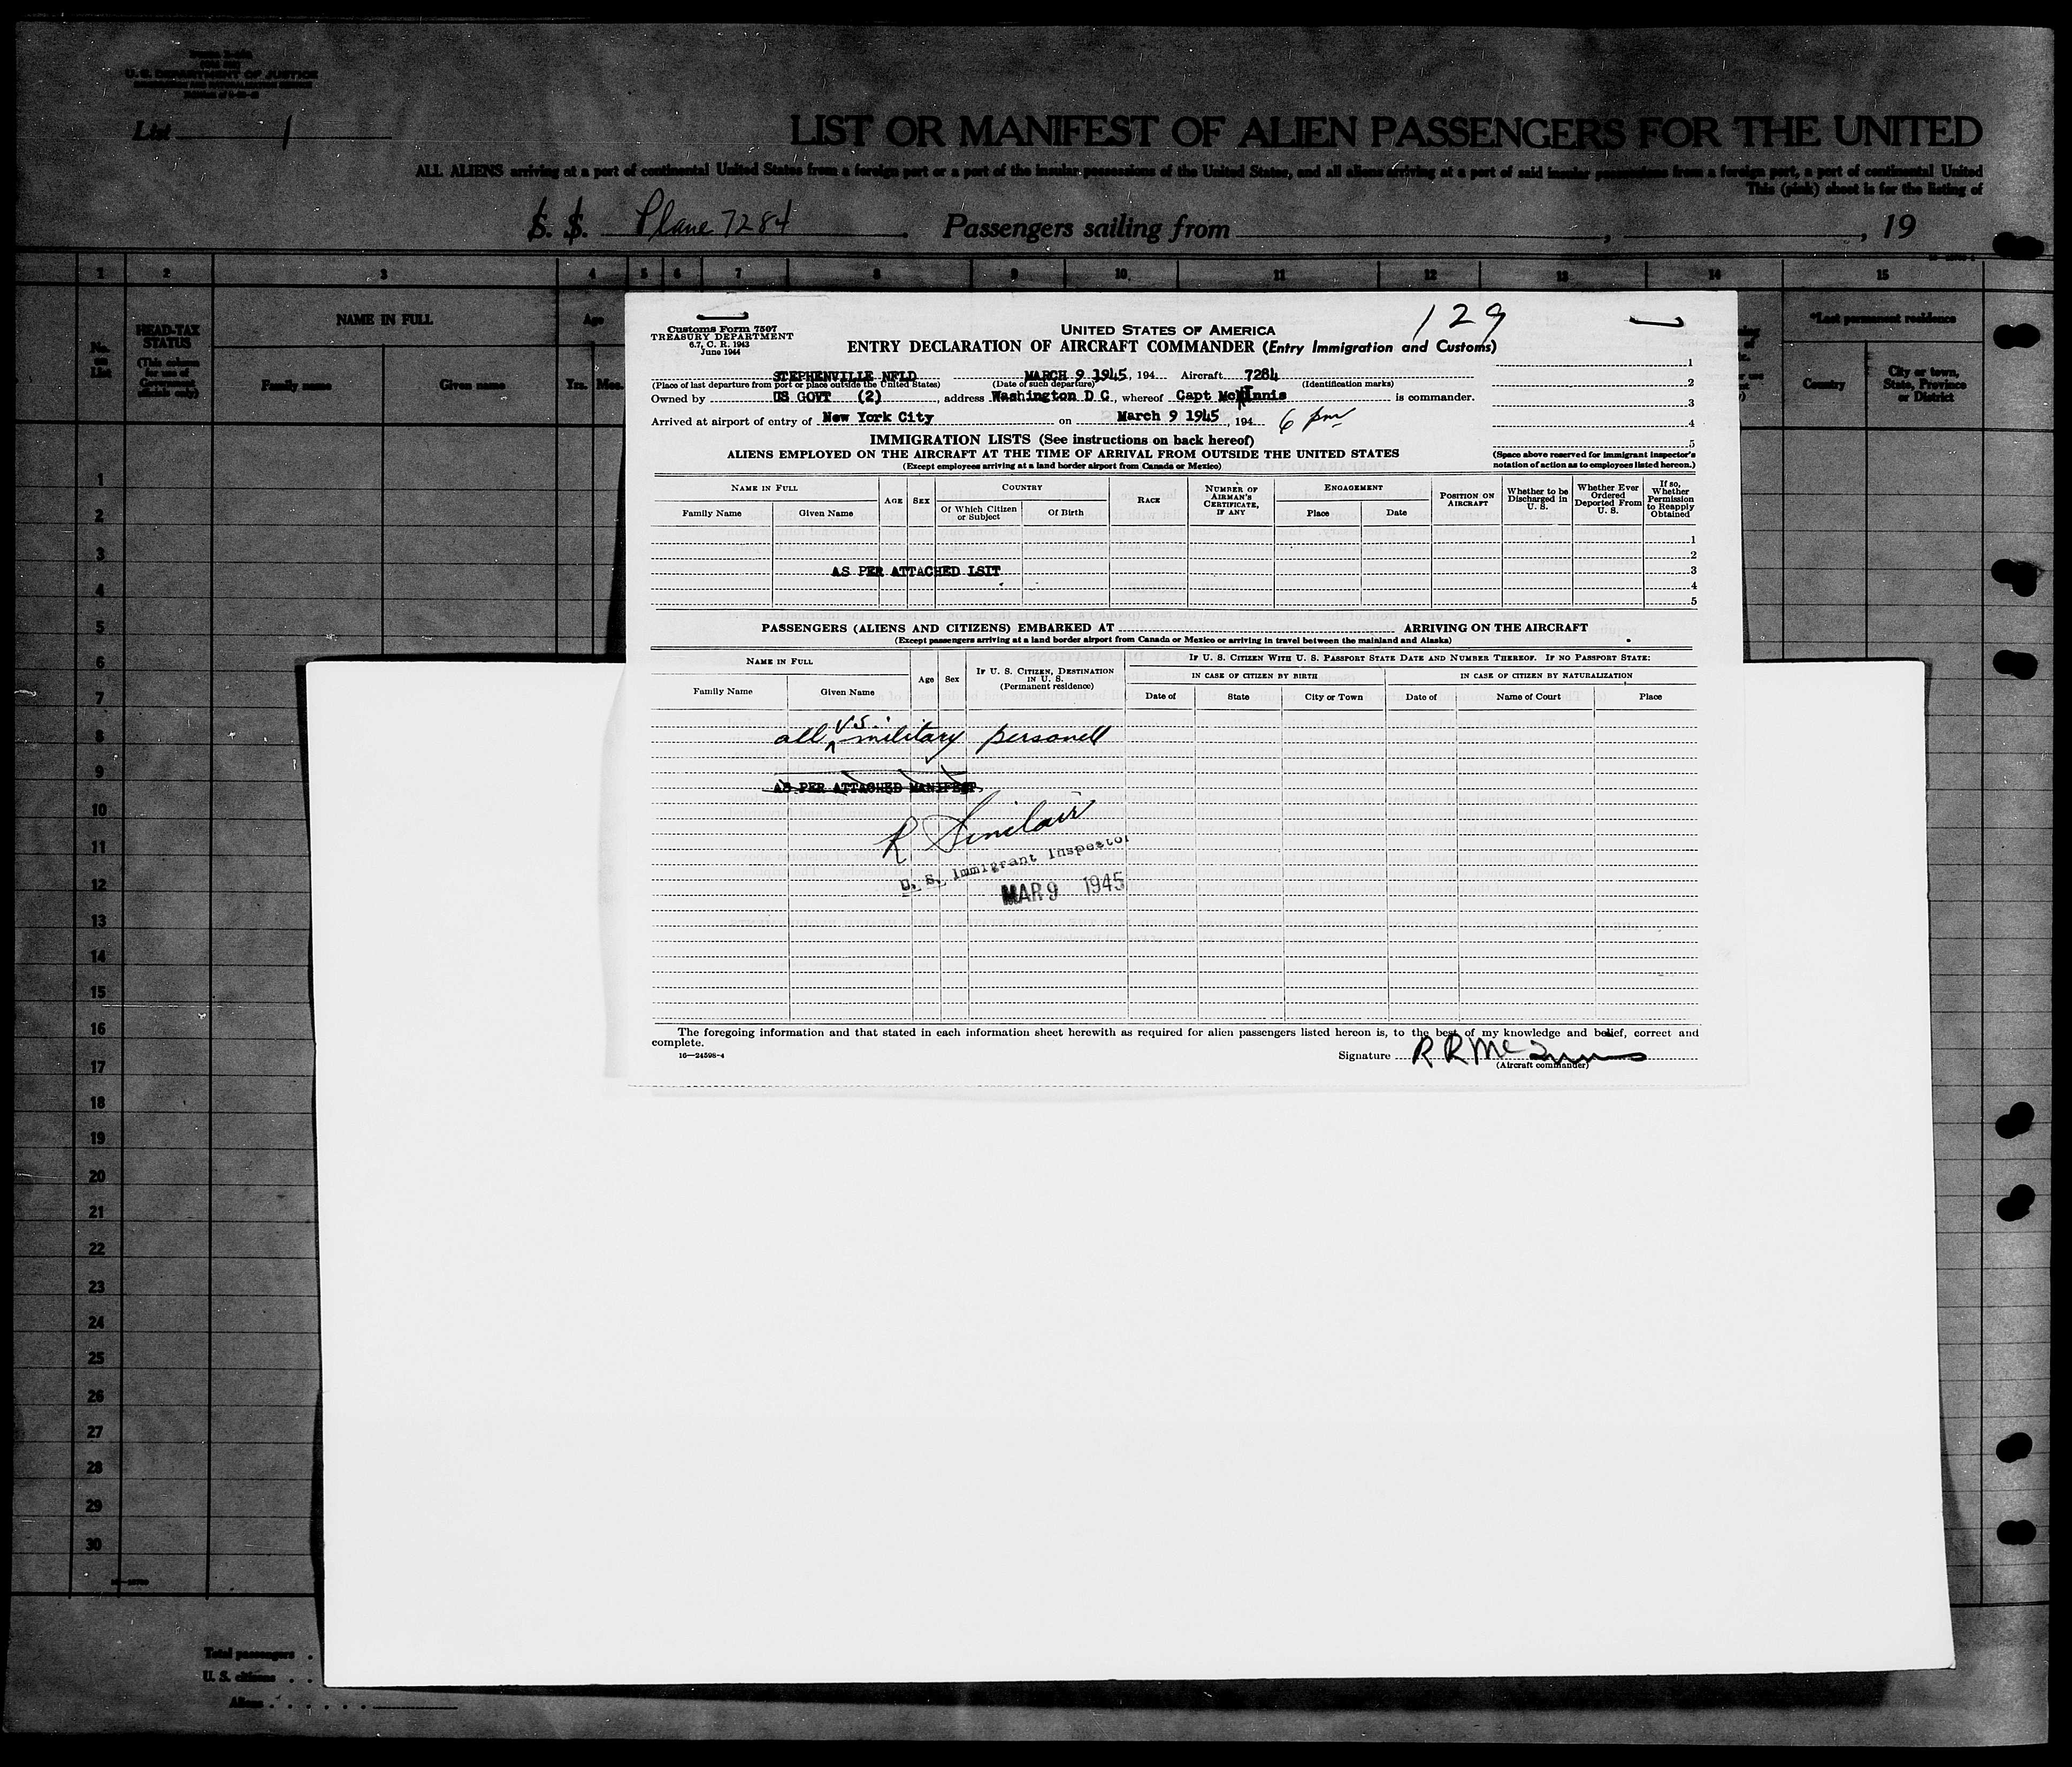 U. S. DEPARTMENT OF JUSTICE
List 1
LIST OR MANIFEST OF ALIEN PASSENGERS FOR THE UNITED
ALL ALIENS arriving at a port of continental United States from a foreign port or a port of the insular possessions of the United States, and all aliens arriving at a port of said insular possessions from a foreign port, a port of continental United
This (pink) sheet is for the listing of
S. S. Plane 7284 . Passengers sailing from , , 19
1 2 3 4 5 6 7 8 9 10 11 12 13 14 15
No. on List
HEAD-TAX STATUS
(This column for use of Government officials only)
NAME IN FULL
Family name Given name
Age
Yrs. Mos.
*Last permanent residence
Country
City or town, State, Province or District
1
2
3
4
5
6
7
8
9
10
11
12
13
14
15
16
17
18
19
20
21
22
23
24
25
26
27
28
29
30
Total passengers .
U. S. citizens . .
Aliens . . . . . .
Customs Form 7507
TREASURY DEPARTMENT
6.7, C. R. 1943
June 1944
129
UNITED STATES OF AMERICA
ENTRY DECLARATION OF AIRCRAFT COMMANDER (Entry Immigration and Customs)
STEPHENVILLE NFLD MARCH 9 1945, 194 Aircraft 7284
(Place of last departure from port or place outside the United States) (Date of such departure) (Identification marks)
Owned by US GOVT (2) , address Washington D C , whereof Capt McInnis is commander.
Arrived at airport of entry of New York City on March 9 1945 , 194 6 pm
1
2
3
4
5
(Space above reserved for immigrant inspector's notation of action as to employees listed hereon.)
IMMIGRATION LISTS (See instructions on back hereof)
ALIENS EMPLOYED ON THE AIRCRAFT AT THE TIME OF ARRIVAL FROM OUTSIDE THE UNITED STATES
(Except employees arriving at a land border airport from Canada or Mexico)
NAME IN FULL
Family Name Given Name
AGE SEX
COUNTRY
Of Which Citizen or Subject Of Birth
RACE
NUMBER OF AIRMAN'S CERTIFICATE, IF ANY
ENGAGEMENT
Place Date
POSITION ON AIRCRAFT
Whether to be Discharged in U. S.
Whether Ever Ordered Deported From U. S.
If so, Whether Permission to Reapply Obtained
1
2
AS PER ATTACHED LSIT 3
4
5
PASSENGERS (ALIENS AND CITIZENS) EMBARKED AT ARRIVING ON THE AIRCRAFT
(Except passengers arriving at a land border airport from Canada or Mexico or arriving in travel between the mainland and Alaska)
NAME IN FULL
Family Name Given Name
Age Sex
IF U. S. CITIZEN, DESTINATION IN U. S.
(Permanent residence)
IF U. S. CITIZEN WITH U. S. PASSPORT STATE DATE AND NUMBER THEREOF. IF NO PASSPORT STATE:
IN CASE OF CITIZEN BY BIRTH IN CASE OF CITIZEN BY NATURALIZATION
Date of State City or Town Date of Name of Court Place
all U.S. military personell
AS PER ATTACHED MANIFEST
R Sinclair
U. S. Immigrant Inspector
MAR 9 1945
The foregoing information and that stated in each information sheet herewith as required for alien passengers listed hereon is, to the best of my knowledge and belief, correct and
complete.
16—24598-4
Signature R R McInnis
(Aircraft commander)